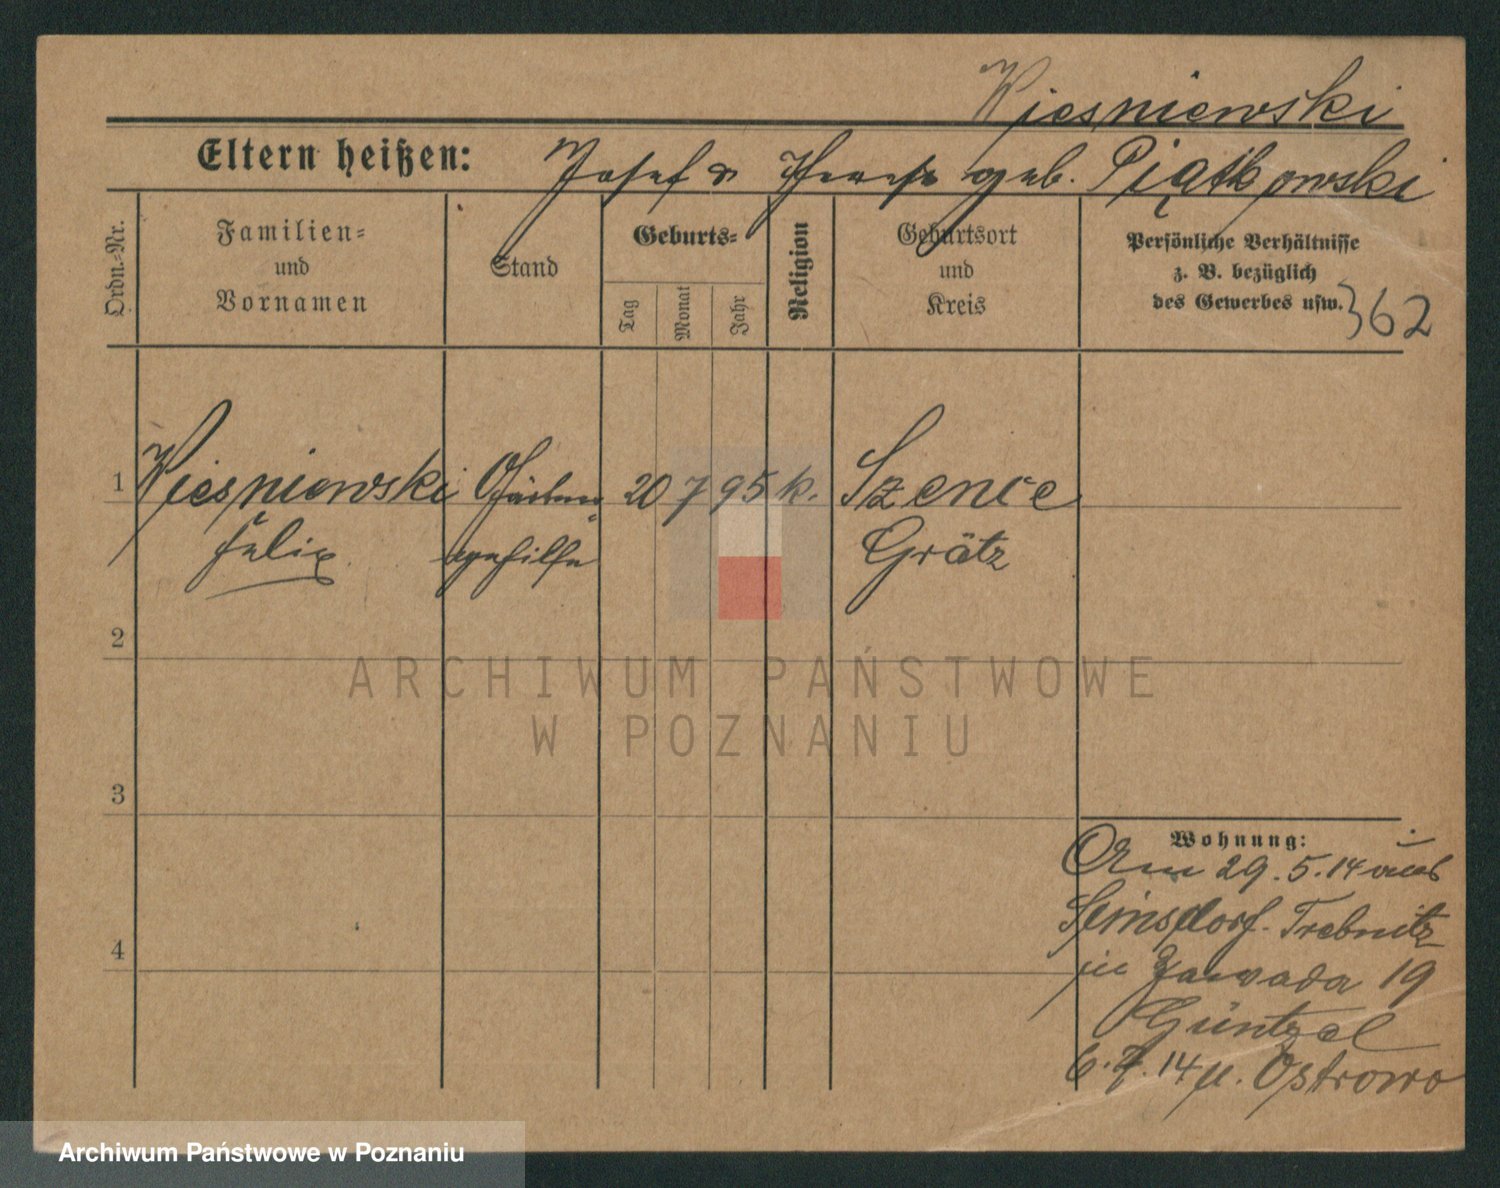 Wiesniewski
Eltern heißen: Josef u geb. Piątkowski
Ordn.-Nr.
Familien-
und
Vornamen
Stand
Geburts-
Tag
Monat
Jahr
Religion
Geburtsort
und
Kreis
Persönliche Verhältnisse
z. B. bezüglich
des Gewerbes usw.
362
1 Wiesniewski Gärtner 20 7 95 k. Szence
Felix gehilfe Grätz
2
3
4
Wohnung:
Am 29.5.14 aus
Trebnitz
in Zawada 19
Güntzel
6.7.14 n. Ostrowo
ARCHIWUM PAŃSTWOWE
W POZNANIU
Archiwum Państwowe w Poznaniu